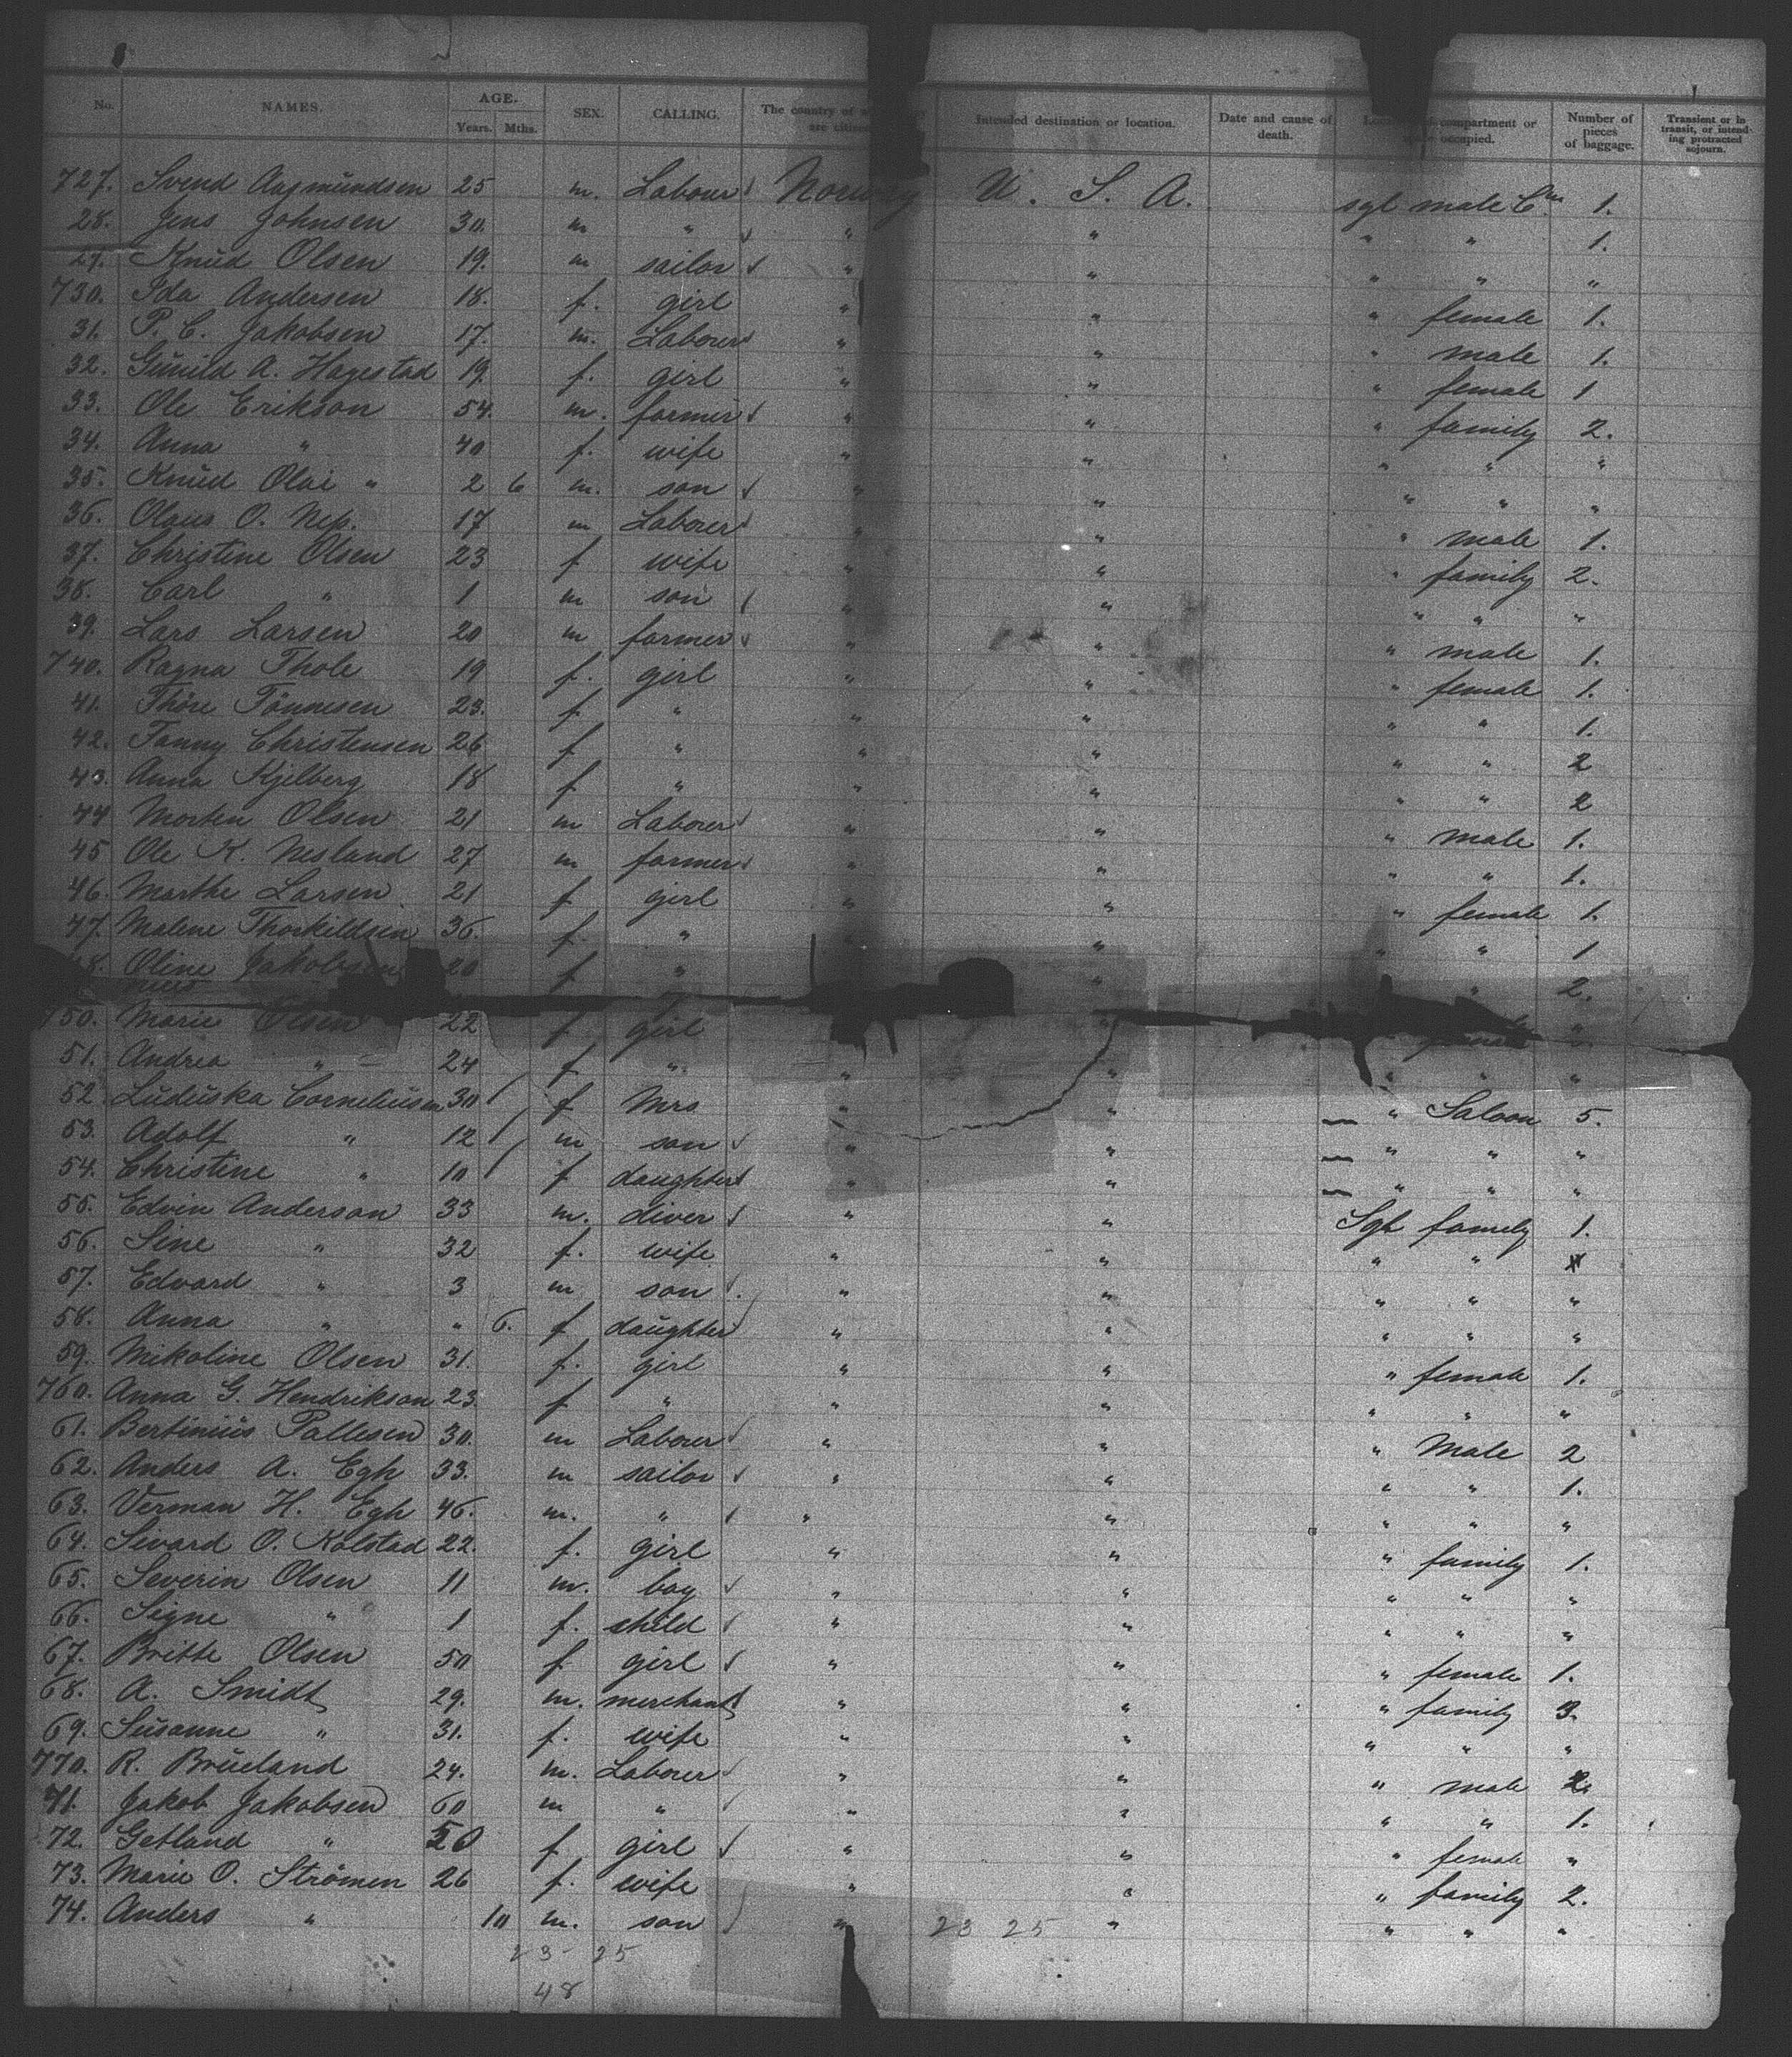 No. NAMES. AGE. Years. Mths. SEX. CALLING. The country of are citizen Intended destination or location. Date and cause of death. compartment or occupied. Number of pieces of baggage. Transient or in transit, or intending protracted sojourn.
727. Svend Aagmundsen 25 m. Labour Norway U. S. A. sgl male 1.
28. Jens Johnsen 30. m " " " " " 1.
29. Knud Olsen 19. m sailor " " " " "
730. Ida Andersen 18. f. girl " " " female 1.
31. P. C. Jakobsen 17. m. Laborer " " " male 1.
32. Gunild A. Hagestad 19. f. girl " " " female 1
33. Ole Erikson 54. m. farmer " " " family 2.
34. Anna " 40 f. wife " " " " "
35. Knud Olai " 2 6 m. son " " " " "
36. Olaus O. Nep. 17 m Laborer " " " male 1.
37. Christine Olsen 23 f wife " " " family 2.
38. Carl " 1 m son " " " " "
39. Lars Larsen 20 m farmer " " " male 1.
740. Ragna Thole 19 f. girl " " " female 1.
41. Thöre Tönnesen 23. f " " " " " 1.
42. Fanny Christensen 26 f " " " " " 2
43. Anna Kjelberg 18 f " " " " " 2
44 Morten Olsen 21 m Laborer " " " male 1.
45 Ole K. Nesland 27 m farmer " " " " 1.
46. Marthe Larsen 21 f girl " " " female 1.
47. Malene Thorkildsen 36. f " " " " " 1
48. Oline Jakobsen 20 f " " " 2.
750. Marie Olsen 22 f girl " "
51. Andrea " 24 f " " " " " "
52. Luduska Corneliusen 30 f Mrs " " " Saloon 5.
53. Adolf " 12 m son " " " " "
54. Christine " 10 f daughter " " " " "
55. Edvin Anderson 33 m. diver " " Sgl family 1.
56. Sine " 32 f. wife " " " " "
57. Edvard " 3 m son " " " " "
58. Anna " " 6. f daughter " " " " "
59. Nikoline Olsen 31. f. girl " " " female 1.
760. Anna G. Hendrikson 23. f " " " " " "
61. Bertinius Pallesen 30. m Laborer " " " Male 2
62. Anders A. Egh 33. m sailor " " " " 1.
63. Verman H. Egh 46. m. " " " " " "
64. Sivard O. Kolstad 22. f. girl " " " family 1.
65. Severin Olsen 11 m. boy " " " " "
66. Signe " 1 f. child " " " " "
67. Britte Olsen 50 f girl " " " female 1.
68. A. Smidt 29. m. merchant " " " family 3.
69. Susanne " 31. f. wife " " " " "
770. R. Brueland 24. m. Laborer " " " male 2.
71. Jakob Jakobsen 60 m " " " " " 1.
72. Getland " 20 f girl " " " female "
73. Marie O. Strömen 26 f. wife " " " family 2.
74. Anders " 10 m. son " 23 25 " " " "
23 25
48